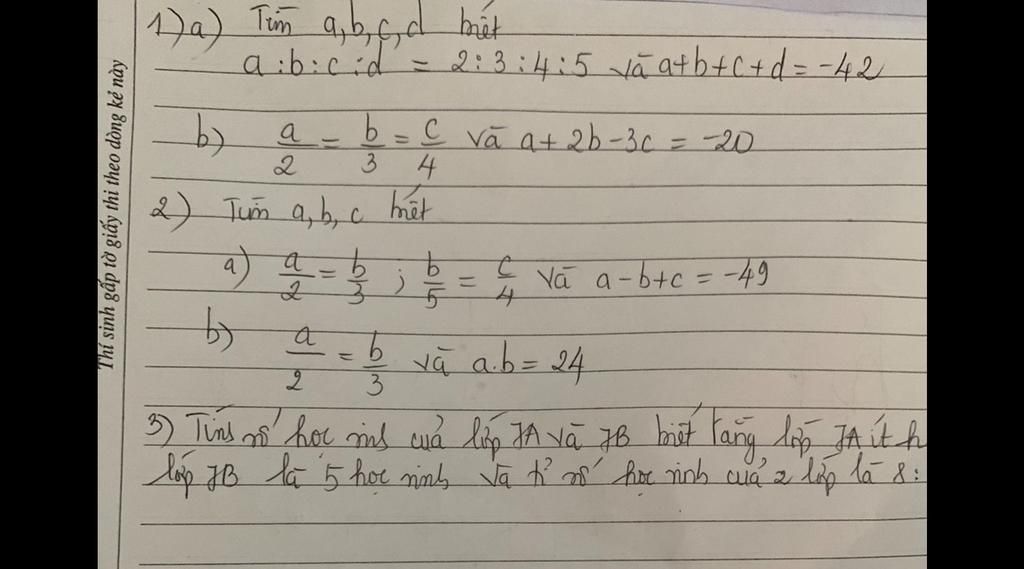 Thí sinh gấp tờ giấy thi theo dòng kẻ này
1) a) Tìm a, b, c, d biết
a : b : c : d = 2 : 3 : 4 : 5 và a+b+c+d = -42
b) a/2 = b/3 = c/4 và a + 2b - 3c = -20
2) Tìm a, b, c biết
a) a/2 = b/3 ; b/5 = c/4 và a - b + c = -49
b) a/2 = b/3 và a.b = 24
3) Tính số học sinh của lớp 7A và 7B biết rằng lớp 7A ít h
lớp 7B là 5 học sinh và tỉ số học sinh của 2 lớp là 8 :